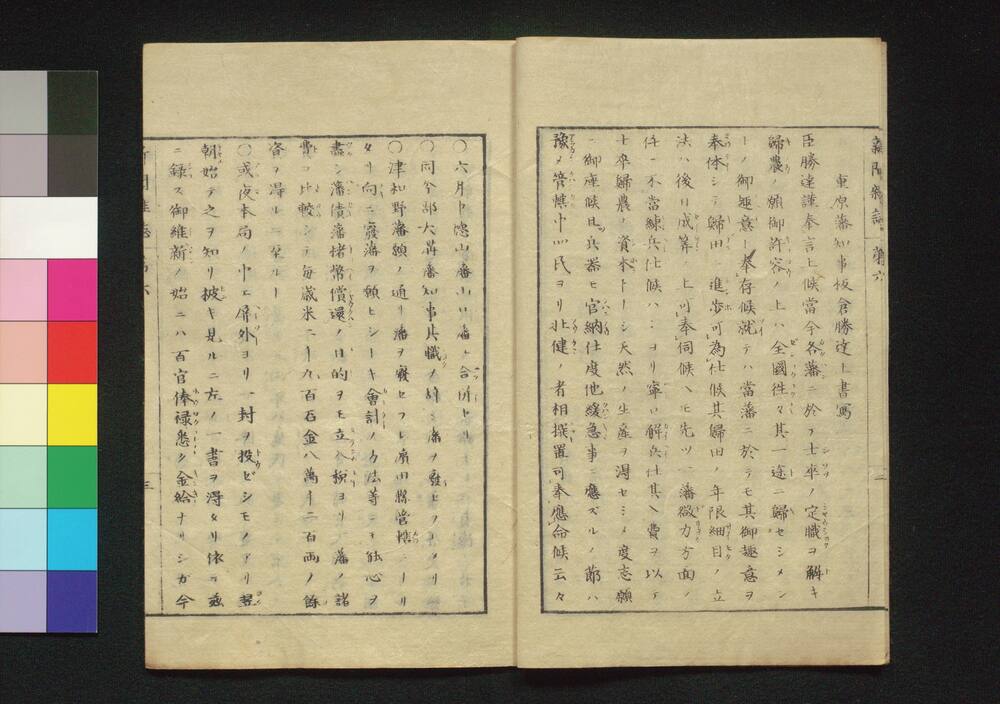 新聞雑誌 第六
重原藩知事板倉勝達上書写
臣勝達謹奉言上候當今各藩ニ於テ士卒ノ定職ヲ解キ
歸農ノ願御許容ノ上ハ全國徃々其一途ニ歸セシメン
トノ御趣意ト奉存候就テハ當藩ニ於テモ其御趣意ヲ
奉体シテ歸田ノ進歩可為仕候其歸田ノ年限細目ノ立
法ハ後日成算ノ上可奉伺候ヘモ先ツ一藩微力方面ノ
任ニ不當練兵仕候ハンヨリ寧ロ解兵仕其入費ヲ以テ
士卒歸農ノ資本トナシ天然ノ生産ヲ得セシメ度志願
ニ御座候且兵器モ官納仕度他緩急事ニ應ズルノ節ハ
豫メ管轄中四民ヨリ壮健ノ者相撰置可奉應命候云々
○六月中徳山藩山口藩ト合併セリ
○同今部大洲藩知事其職ヲ辞シ藩ヲ廢セラレタリ
○津和野藩願ノ通リ藩ヲ廢セラレ濱田縣管轄トナレリ
タリ向ニ廢藩ヲ願ヒシトキ會計ノ方法等ニモ能心ヲ
盡シ藩債藩楮幣償還ノ目的ヲモ立分換ヨリモ藩ノ諸
費ニ比較シテ毎歳米二千九百石金八萬千二百両ノ餘
資ヲ得ルニ至ルト
○或夜本局ノ中ニ屏外ヨリ一封ヲ投ゼシモノアリ翌
朝始テ之ヲ知リ披キ見ルニ左ノ一書ヲ得タリ依テ茲
ニ録ス御維新ノ始ニハ百官俸禄悉ク金給ナリシガ今